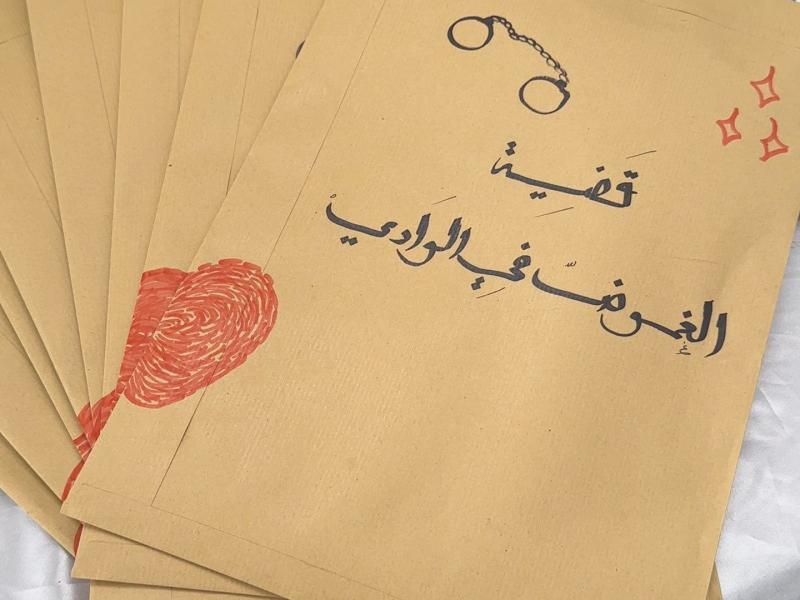 قضية
الغموض في الوادي